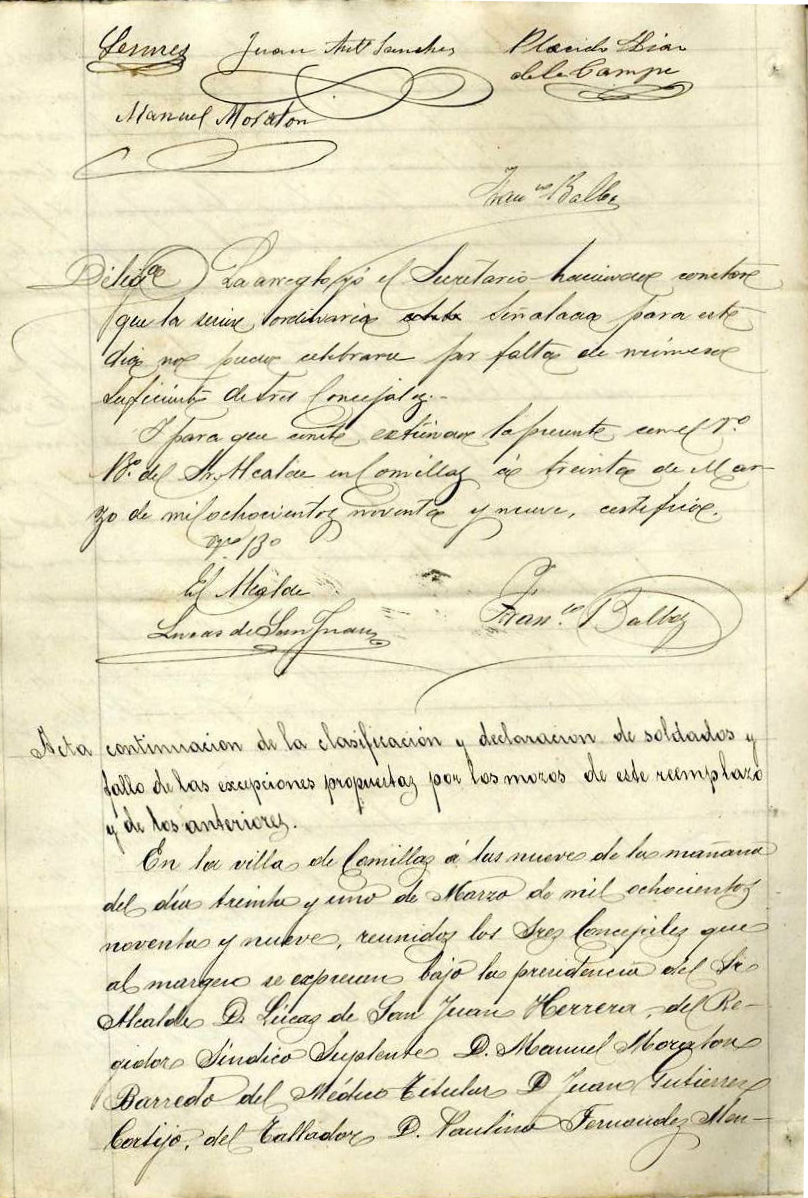 Juan Ant.º Sanchez Placido Diaz
de la Campa
Manuel Moraton
Fran.co Balbas
Dilig.ª La arreglo yó el Secretario haciendo constar
que la sesion ordinaria señalada para este
dia no puede celebrarse por falta de número
suficiente de tres Concejales.
Y para que conste extiendo la presente con el V.º
B.º del Sr. Alcalde en Comillas á treinta de Mar-
zo de mil ochocientos noventa y nueve, certifico.
V.º B.º
El Alcalde
Lucas de San Juan Fran.co Balbas
Acta continuacion de la clasificación y declaracion de soldados y
fallo de las excepciones propuestas por los mozos de este reemplazo
y de los anteriores.
En la villa de Comillas á las nueve de la mañana
del día treinta y uno de Marzo de mil ochocientos
noventa y nueve, reunidos los Sres Concejales que
al margen se expresan bajo la presidencia del Sr
Alcalde D. Lúcas de San Juan Herrera, del Re-
gidor Síndico Suplente D. Manuel Moraton
Barredo del Médico Titular D Juan Gutierrez
Cortijo, del Tallador D. Paulino Fernandez Men-